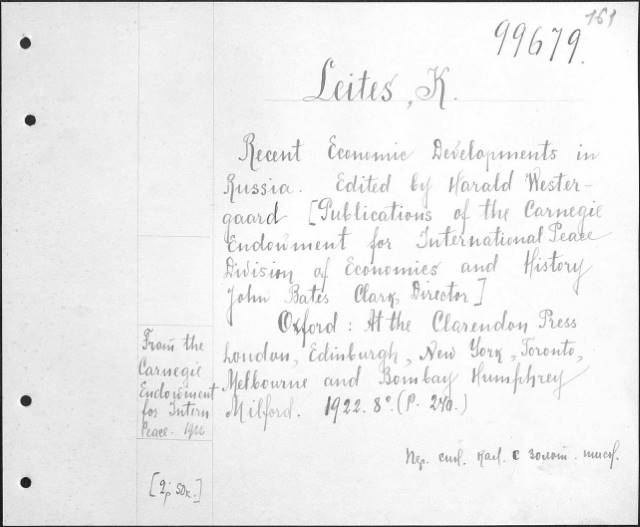 161
99679.
Leites, K.
Recent Economic Developments in
Russia. Edited by Harald Wester-
gaard [Publications of the Carnegie
Endowment for International Peace
Division of Economics and History
John Bates Clark, Director]
Oxford: At the Clarendon Press
London, Edinburgh, New York, Toronto,
Melbourne and Bombay Humphrey
Milford. 1922. 8°. (P. 240.)
From the
Carnegie
Endowment
for Intern
Peace - 1922
Пер. син. кал. с золот. тисн.